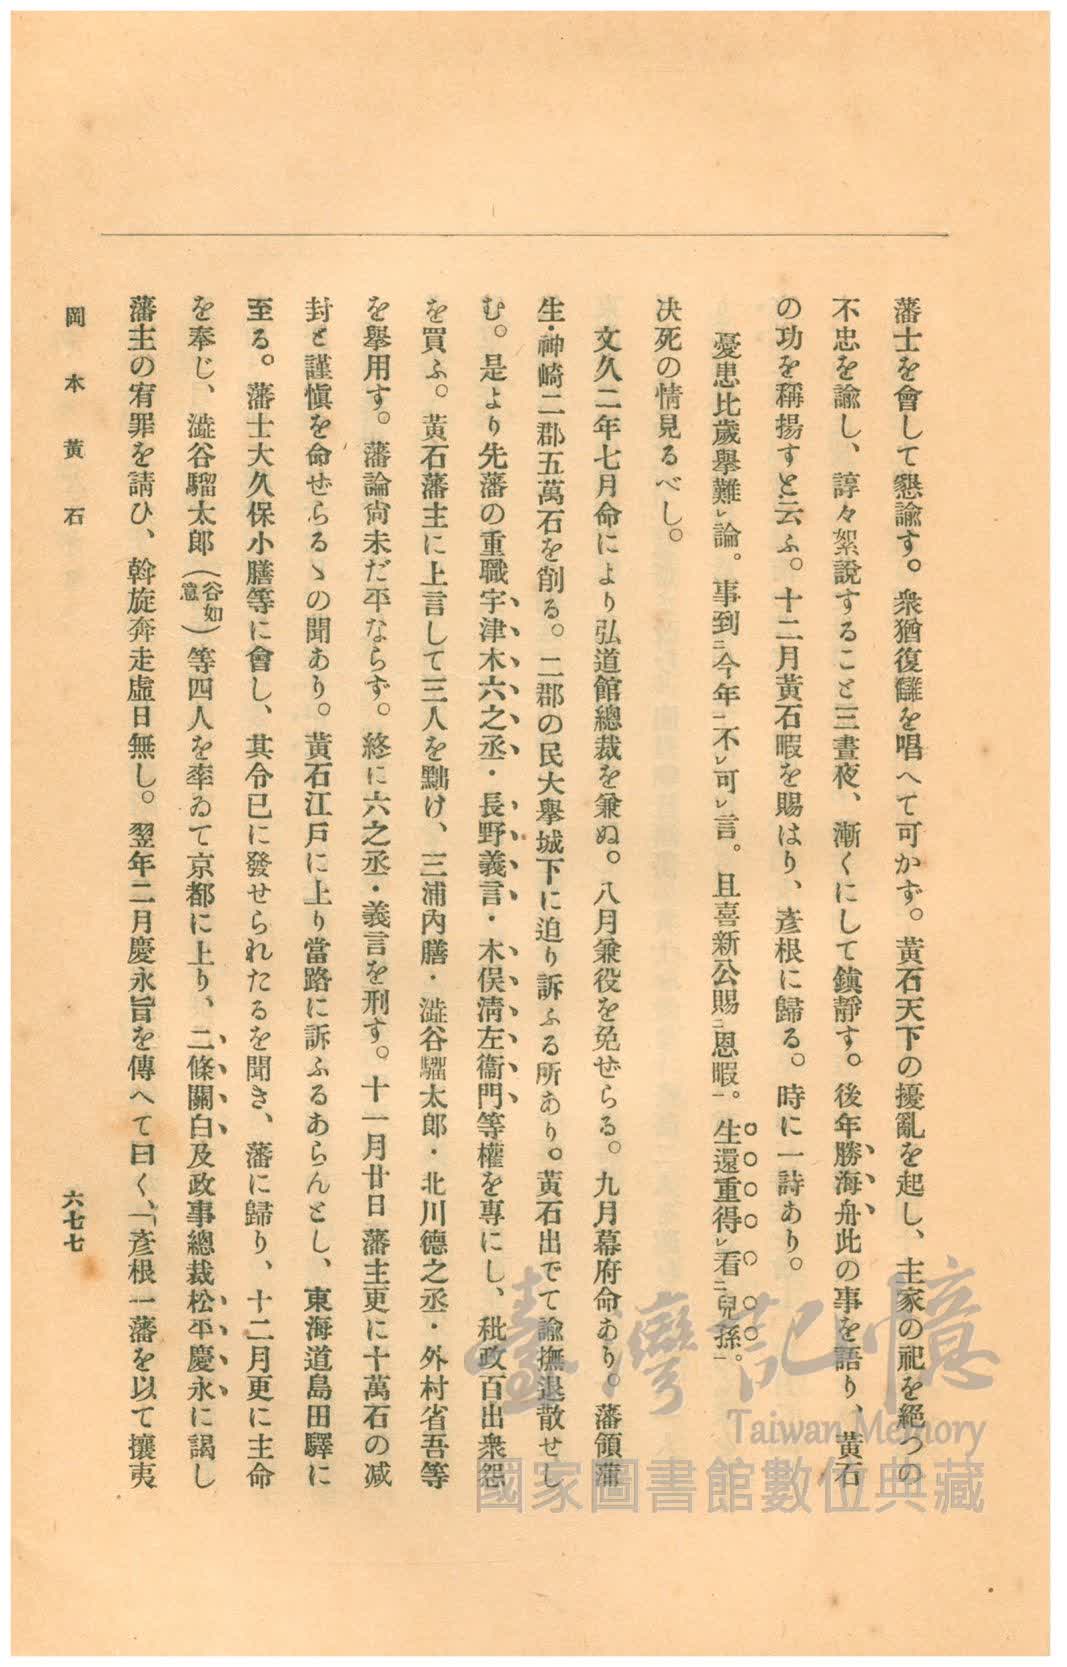 藩士を會して懇諭す。衆猶復讎を唱へて可かず。黄石天下の擾亂を起し、主家の祀を絶つの
不忠を諭し、諄々絮說すること三晝夜、漸くにして鎭靜す。後年勝海舟此の事を語り、黄石
の功を稱揚すと云ふ。十二月黄石暇を賜はり、彥根に歸る。時に一詩あり。
憂患比歲擧難レ論。事到二今年一不レ可レ言。且喜新公賜二恩暇一。生還重得レ看二兒孫一。
決死の情見るべし。
文久二年七月命により弘道館總裁を兼ぬ。八月兼役を免ぜらる。九月幕府命あり。藩領蒲
生・神崎二郡五萬石を削る。二郡の民大擧城下に迫り訴ふる所あり。黄石出でて諭撫退散せし
む。是より先藩の重職宇津木六之丞・長野義言・木俣淸左衞門等權を專にし、秕政百出衆怨
を買ふ。黄石藩主に上言して三人を黜け、三浦內膳・澁谷騮太郎・北川德之丞・外村省吾等
を擧用す。藩論尙未だ平ならず。終に六之丞・義言を刑す。十一月廿日藩主更に十萬石の減
封と謹愼を命ぜらるゝの聞あり。黄石江戶に上り當路に訴ふるあらんとし、東海道島田驛に
至る。藩士大久保小膳等に會し、其令已に發せられたるを聞き、藩に歸り、十二月更に主命
を奉じ、澁谷騮太郎(谷如意)等四人を率ゐて京都に上り、二條關白及政事總裁松平慶永に謁し
藩主の宥罪を請ひ、斡旋奔走虛日無し。翌年二月慶永旨を傳へて曰く、「彥根一藩を以て攘夷
岡本黄石
六七七
臺灣記憶
Taiwan Memory
國家圖書館數位典藏